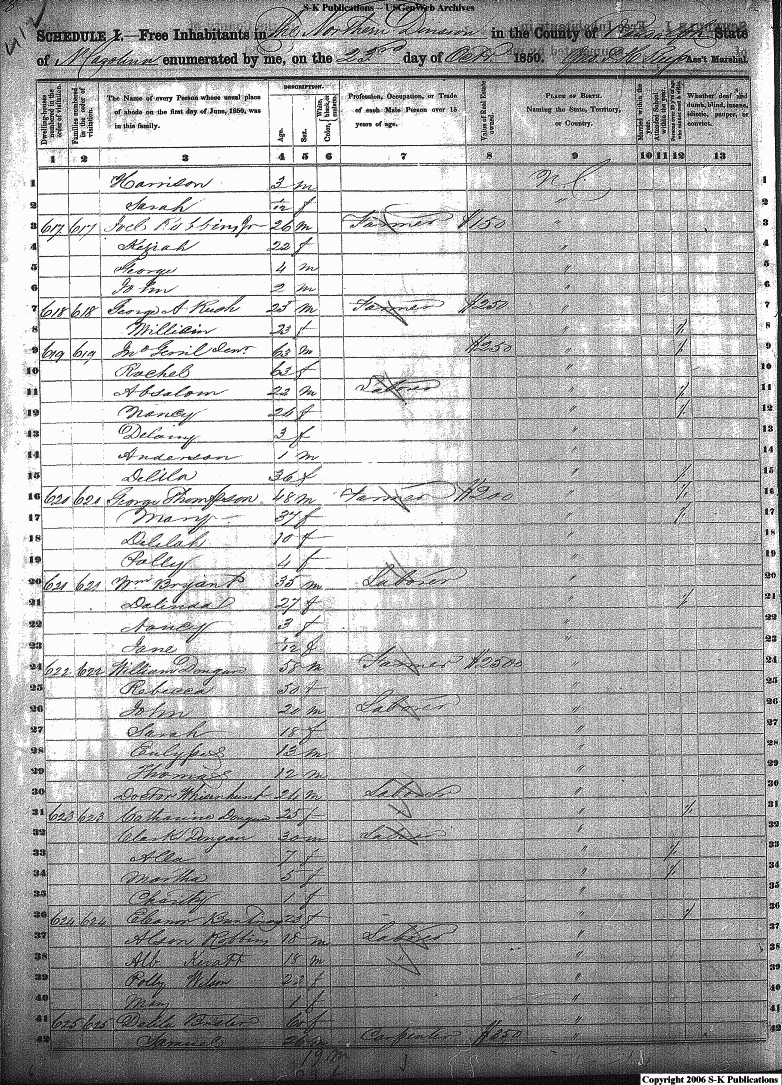 S-K Publications -- USGenWeb Archives
SCHEDULE I.—Free Inhabitants in the Northern Division in the County of State
of N Carolina enumerated by me, on the 23rd day of Oct. 1850. Ass't Marshal
Dwelling-houses numbered in the order of visitation.
Families numbered in the order of visitation.
The Name of every Person whose usual place of abode on the first day of June, 1850, was in this family.
DESCRIPTION.
Age.
Sex.
Color, White, black, or mulatto.
Profession, Occupation, or Trade of each Male Person over 15 years of age.
Value of Real Estate owned.
PLACE OF BIRTH.
Naming the State, Territory, or Country.
Married within the year.
Attended School within the year.
Whether deaf and dumb, blind, insane, idiotic, pauper, or convict.
1 2 3 4 5 6 7 8 9 10 11 12 13
1 Harrison 3 m N C 1
2 Sarah /12 f " 2
3 617 617 Joel Robbins Jr 26 m Farmer $150 " 3
4 Keziah 22 f " 4
5 George 4 m " 5
6 John 2 m " 6
7 618 618 George A Rush 23 m Farmer $250 " 7
8 William 23 f " / 8
9 619 619 63 m $250 " / 9
10 Rachel 63 f " 10
11 Absalom 22 m Laborer " / 11
12 Nancy 24 f " / 12
13 3 f " 13
14 Anderson 1 m " 14
15 Delila 36 f " / 15
16 620 620 George Thompson 48 m Farmer $200 " / 16
17 Mary 37 f " / 17
18 Delilah 10 f " 18
19 Polly 4 f " 19
20 621 621 Wm Bryant 35 m Laborer " 20
21 Dalinda 27 f " / 21
22 Nancy 3 f " 22
23 Jane /12 f " 23
24 622 622 William Dougan 58 m Farmer $2500 " 24
25 Rebecca 50 f " 25
26 John 20 m Laborer " 26
27 Sarah 18 f " 27
28 13 m " 28
29 Thomas 12 m " 29
30 Doctor Whisenhunt 24 m Laborer " 30
31 623 623 Catharine Dougan 25 f " / 31
32 Clark Dougan 30 m Laborer " 32
33 7 f " / 33
34 Martha 5 f " / 34
35 Charity 1 f " 35
36 624 624 Eleanor 23 f " / 36
37 Alson Robbins 18 m Laborer " 37
38 18 m " 38
39 Polly Wilson 23 f " 39
40 Mary 1 f " 40
41 625 625 Delila 60 f " 41
42 Samuel 26 m Carpenter $350 " 42
19 m
Copyright 2006 S-K Publications